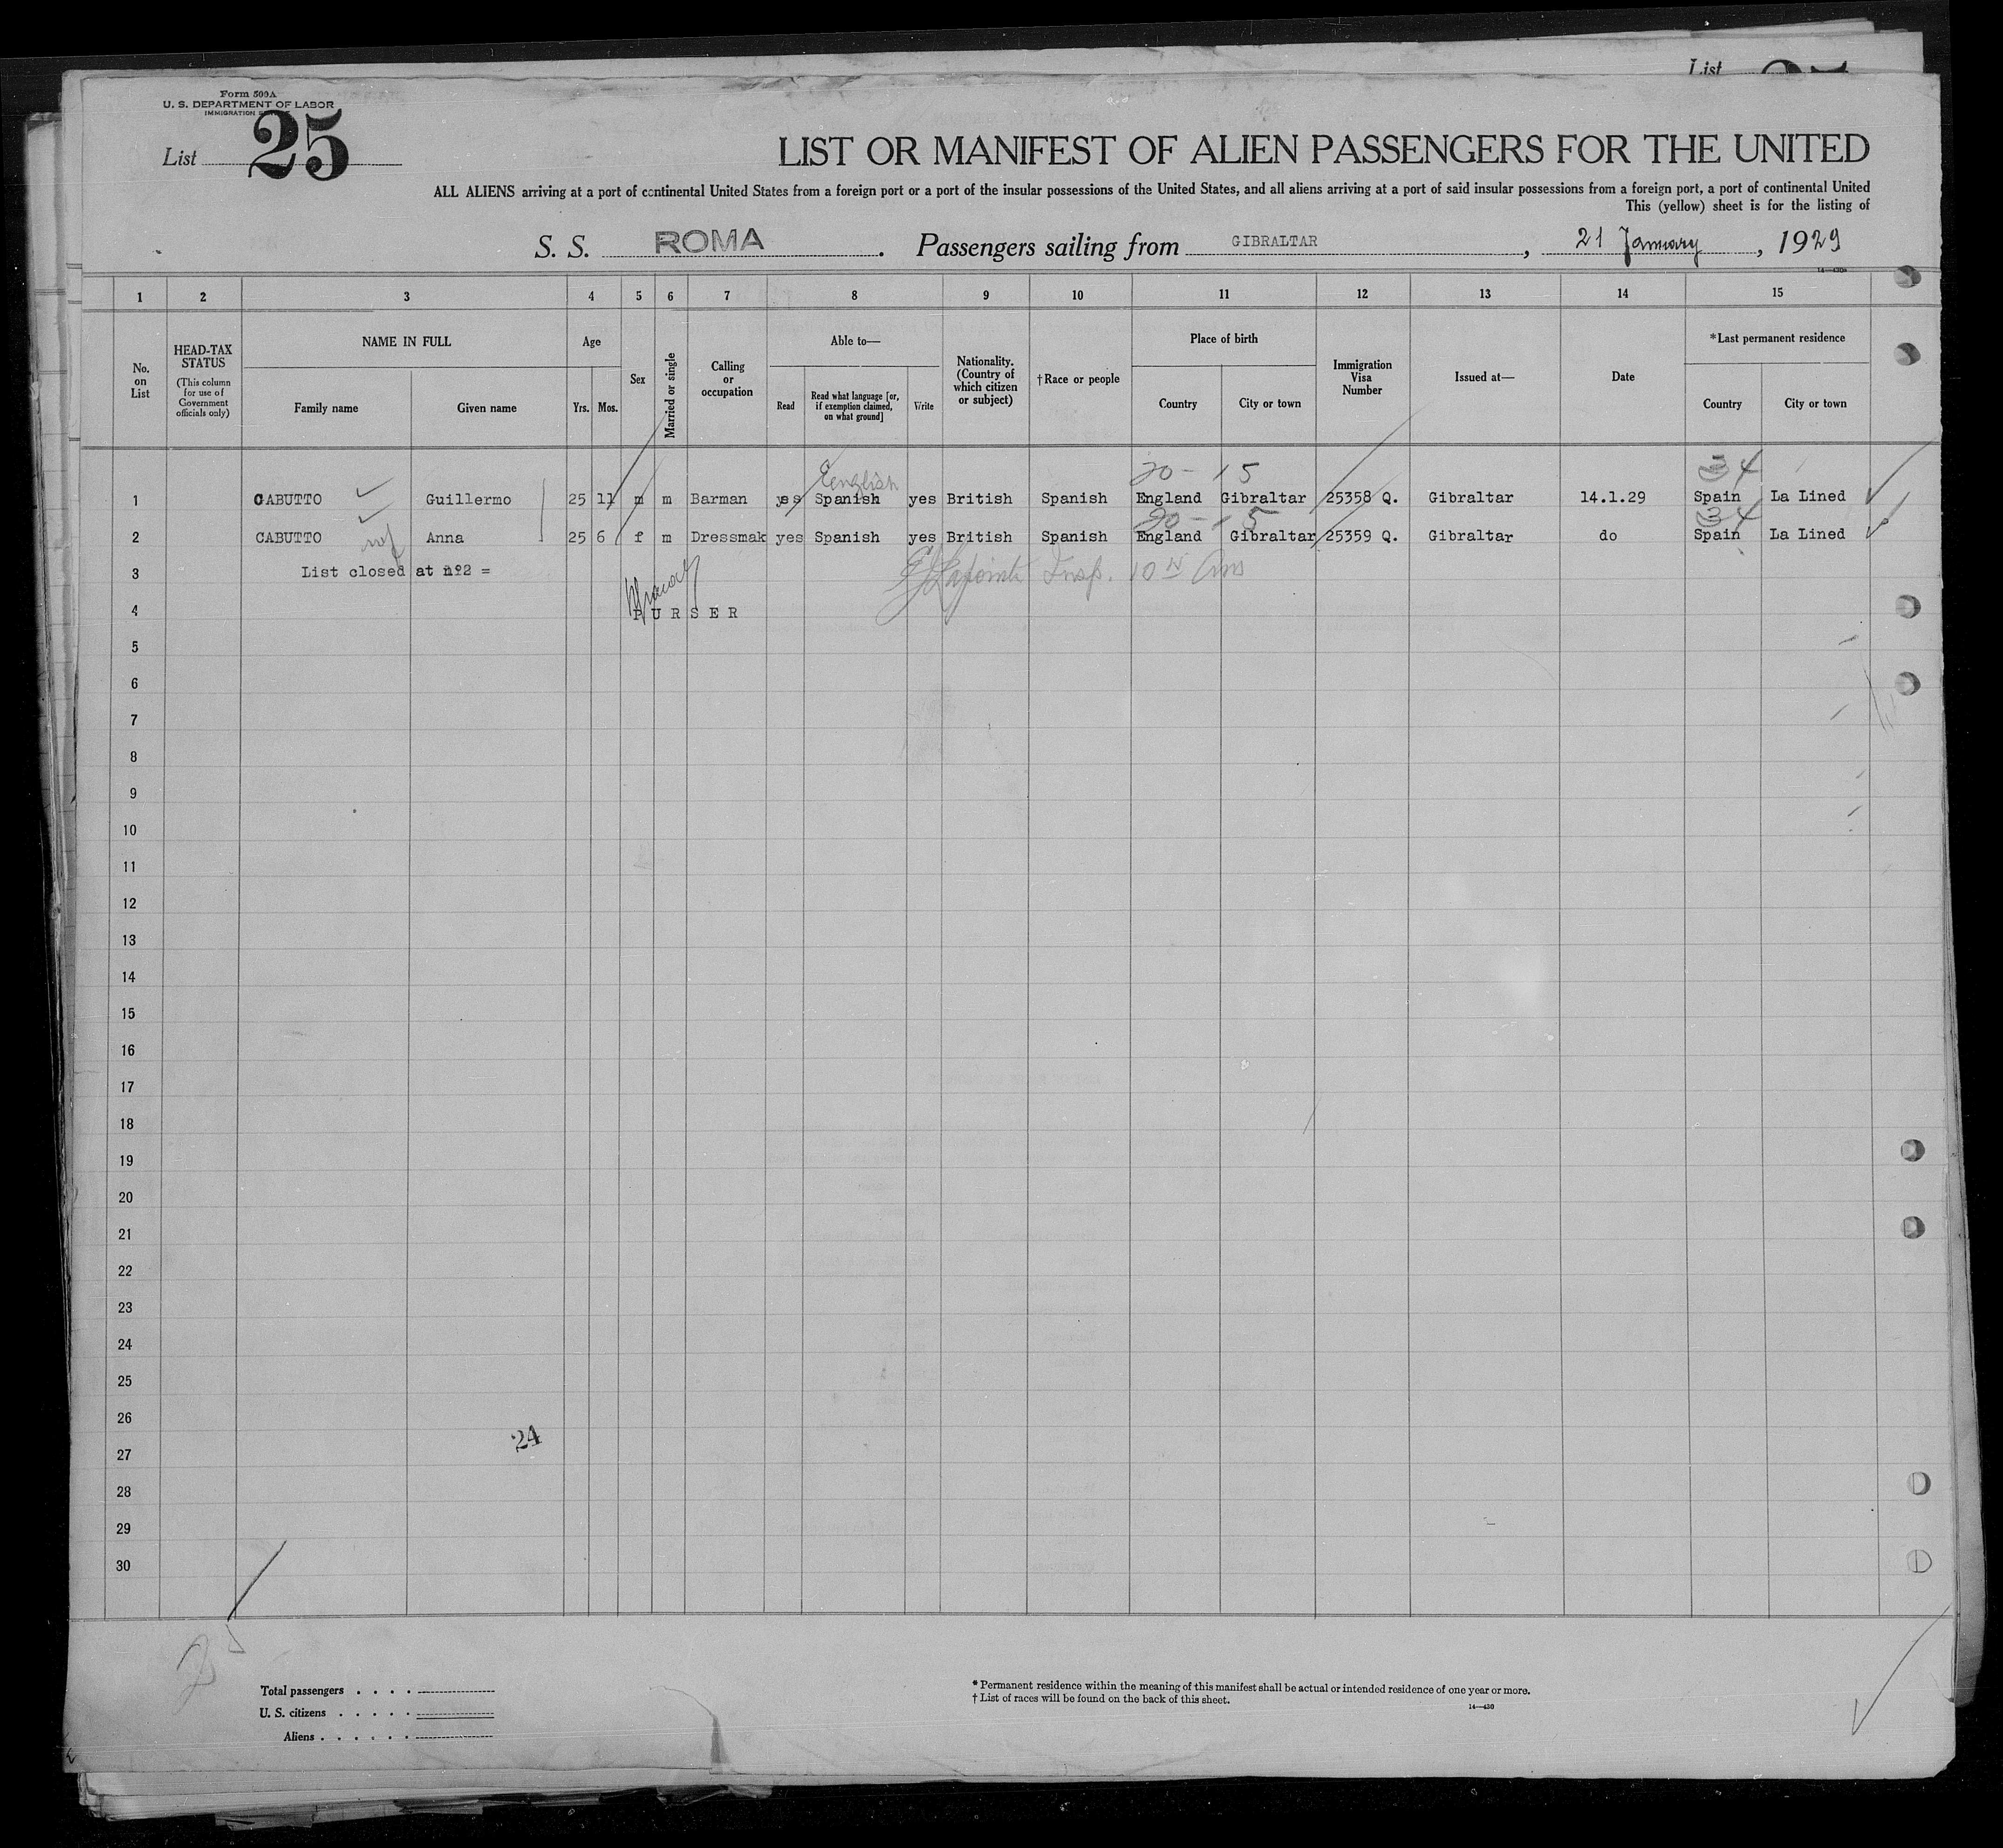 List
Form 500A
U. S. DEPARTMENT OF LABOR
IMMIGRATION
List 25
LIST OR MANIFEST OF ALIEN PASSENGERS FOR THE UNITED
ALL ALIENS arriving at a port of continental United States from a foreign port or a port of the insular possessions of the United States, and all aliens arriving at a port of said insular possessions from a foreign port, a port of continental United
This (yellow) sheet is for the listing of
S. S. ROMA. Passengers sailing from GIBRALTAR, 21 January, 1929
14—430
1 2 3 4 5 6 7 8 9 10 11 12 13 14 15
No. on List
HEAD-TAX STATUS (This column for use of Government officials only)
NAME IN FULL
Family name Given name
Age
Yrs. Mos.
Sex
Married or single
Calling or occupation
Able to—
Read
Read what language [or, if exemption claimed, on what ground]
Write
Nationality. (Country of which citizen or subject)
†Race or people
Place of birth
Country City or town
Immigration Visa Number
Issued at—
Date
*Last permanent residence
Country City or town
English 20- 15 34
1 CABUTTO Guillermo 25 11 m m Barman yes Spanish yes British Spanish England Gibraltar 25358 Q. Gibraltar 14.1.29 Spain La Lined
20- 15 34
2 CABUTTO Anna 25 6 f m Dressmak yes Spanish yes British Spanish England Gibraltar 25359 Q. Gibraltar do Spain La Lined
3 List closed at nº2 = Lapointe Insp.
4 PURSER
5
6
7
8
9
10
11
12
13
14
15
16
17
18
19
20
21
22
23
24
25
26
24
27
28
29
30
Total passengers . . . .
U. S. citizens . . . . .
Aliens . . . . . .
* Permanent residence within the meaning of this manifest shall be actual or intended residence of one year or more.
† List of races will be found on the back of this sheet.
14—430